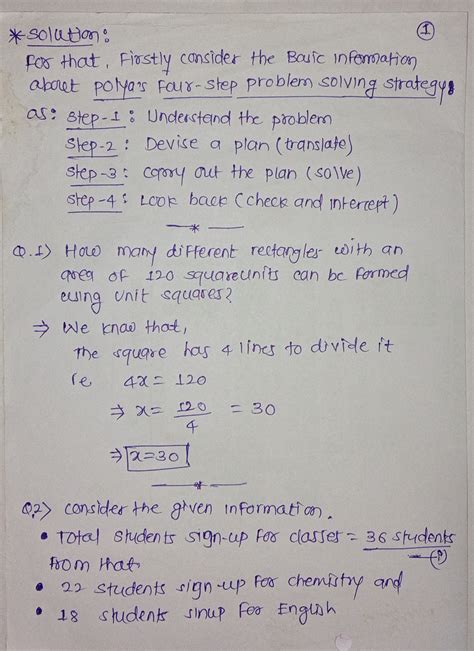 ①
* Solution:
For that, Firstly consider the Basic information
about polya's Four-step problem solving strategy,
as: Step-1 : Understand the problem
Step-2 : Devise a plan (translate)
Step-3 : carry out the plan (solve)
Step-4 : Look back (check and intercept)
Q.1) How many different rectangles with an
area of 120 squareunits can be formed
using unit squares?
⇒ We know that,
The square has 4 lines to divide it
i.e. 4x = 120
⇒ x = 120/4 = 30
⇒ x=30
Q.2) consider the given information.
• Total students sign-up for classes = 36 students
From that
• 22 students sign-up for chemistry and
• 18 students sinup for English